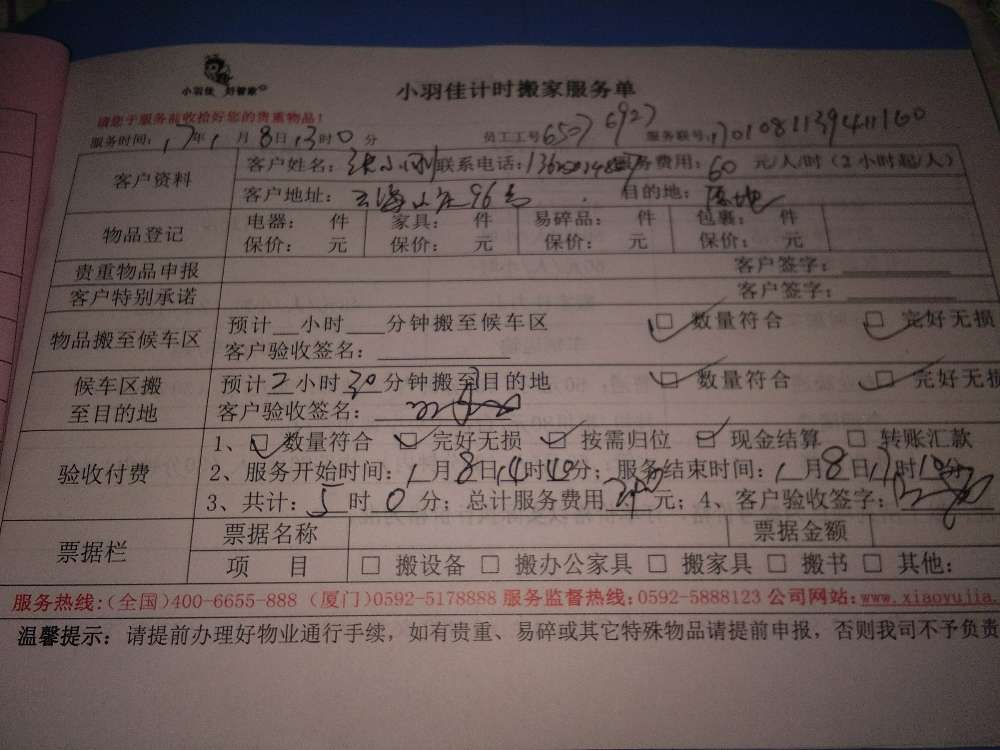 小羽佳 好管家
小羽佳计时搬家服务单
请您于服务前收拾好您的贵重物品!
服务时间: 17年1月8日13时0分 员工工号6507 6927 服务联号:
客户资料 客户姓名: 张小刚 联系电话: 务费用: 60 元/人/时(2小时起/人)
客户地址: 云海山庄96号 目的地:
物品登记 电器: 件 家具: 件 易碎品: 件 包裹: 件
保价: 元 保价: 元 保价: 元 保价: 元
贵重物品申报 客户签字:
客户特别承诺 客户签字:
物品搬至候车区 预计 小时 分钟搬至候车区 数量符合 完好无损
客户验收签名:
候车区搬至目的地 预计2小时30分钟搬至目的地 数量符合 完好无损
客户验收签名:
验收付费 1、数量符合 完好无损 按需归位 现金结算 转账汇款
2、服务开始时间: 1月8日14时40分; 服务结束时间: 1月8日17时10分
3、共计: 5时0分; 总计服务费用 元; 4、客户验收签字:
票据栏 票据名称 票据金额
项目 搬设备 搬办公家具 搬家具 搬书 其他:
服务热线:(全国)400-6655-888 (厦门)0592-5178888 服务监督热线:0592-5888123 公司网站:www.xiaoyujia.
温馨提示: 请提前办理好物业通行手续,如有贵重、易碎或其它特殊物品请提前申报,否则我司不予负责